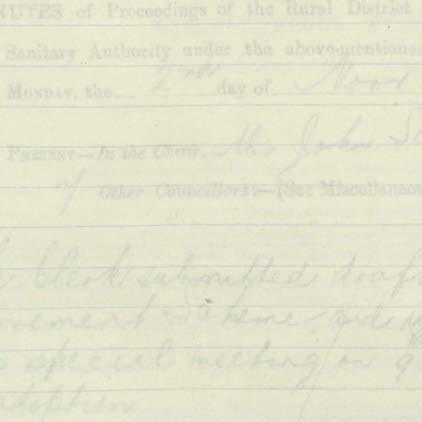 NUTES of Proceedings of the Rural District
Sanitary Authority under the above-mentione
MONDAY, the 2nd day of Novr
PRESENT—In the Chair, Mr John
7 Other Councillors:—(See Miscellaneou
Clerk submitted draf
ovement Scheme and
special meeting on 9
adoption